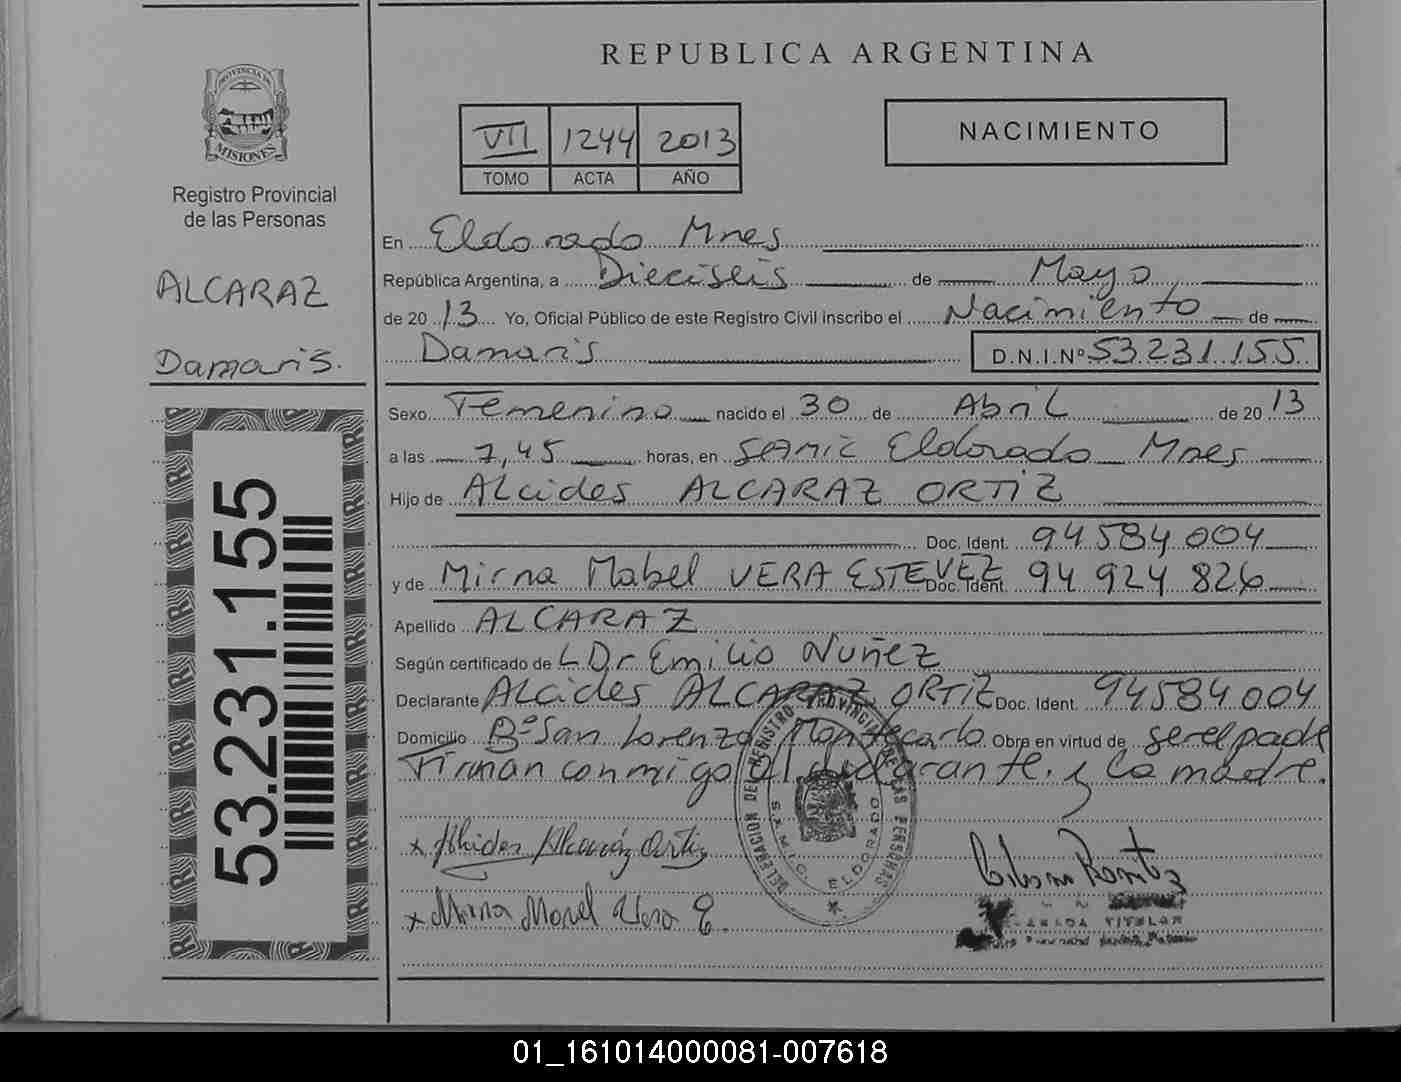 REPUBLICA ARGENTINA
PROVINCIA DE
MISIONES
Registro Provincial
de las Personas
ALCARAZ
Damaris.
53.231.155
VII 1244 2013
TOMO ACTA AÑO
NACIMIENTO
En Eldorado Mnes
República Argentina, a Dieciseis de Mayo
de 20 13 Yo, Oficial Público de este Registro Civil inscribo el Nacimiento de
Damaris D.N.I.Nº 53.231.155
Sexo Femenino nacido el 30 de Abril de 20 13
a las 7,45 horas, en SAMIC Eldorado Mnes
Hijo de Alcides ALCARAZ ORTIZ
Doc. Ident. 94 584 004
y de Mirna Mabel VERA ESTEVEZ Doc. Ident. 94 924 826
Apellido ALCARAZ
Según certificado de L Dr Emilio Nuñez
Declarante Alcides ALCARAZ ORTIZ Doc. Ident. 94584004
Domicilio Bº San Lorenzo Montecarlo Obra en virtud de ser el padre
Firman conmigo el declarante. y la madre.
DELEGACION DEL REGISTRO PROVINCIAL DE LAS PERSONAS
S.A.M.I.C. ELDORADO
x Alcides Alcaráz Ortiz
x Mirna Mabel Vera E.
TITULAR
01_161014000081-007618